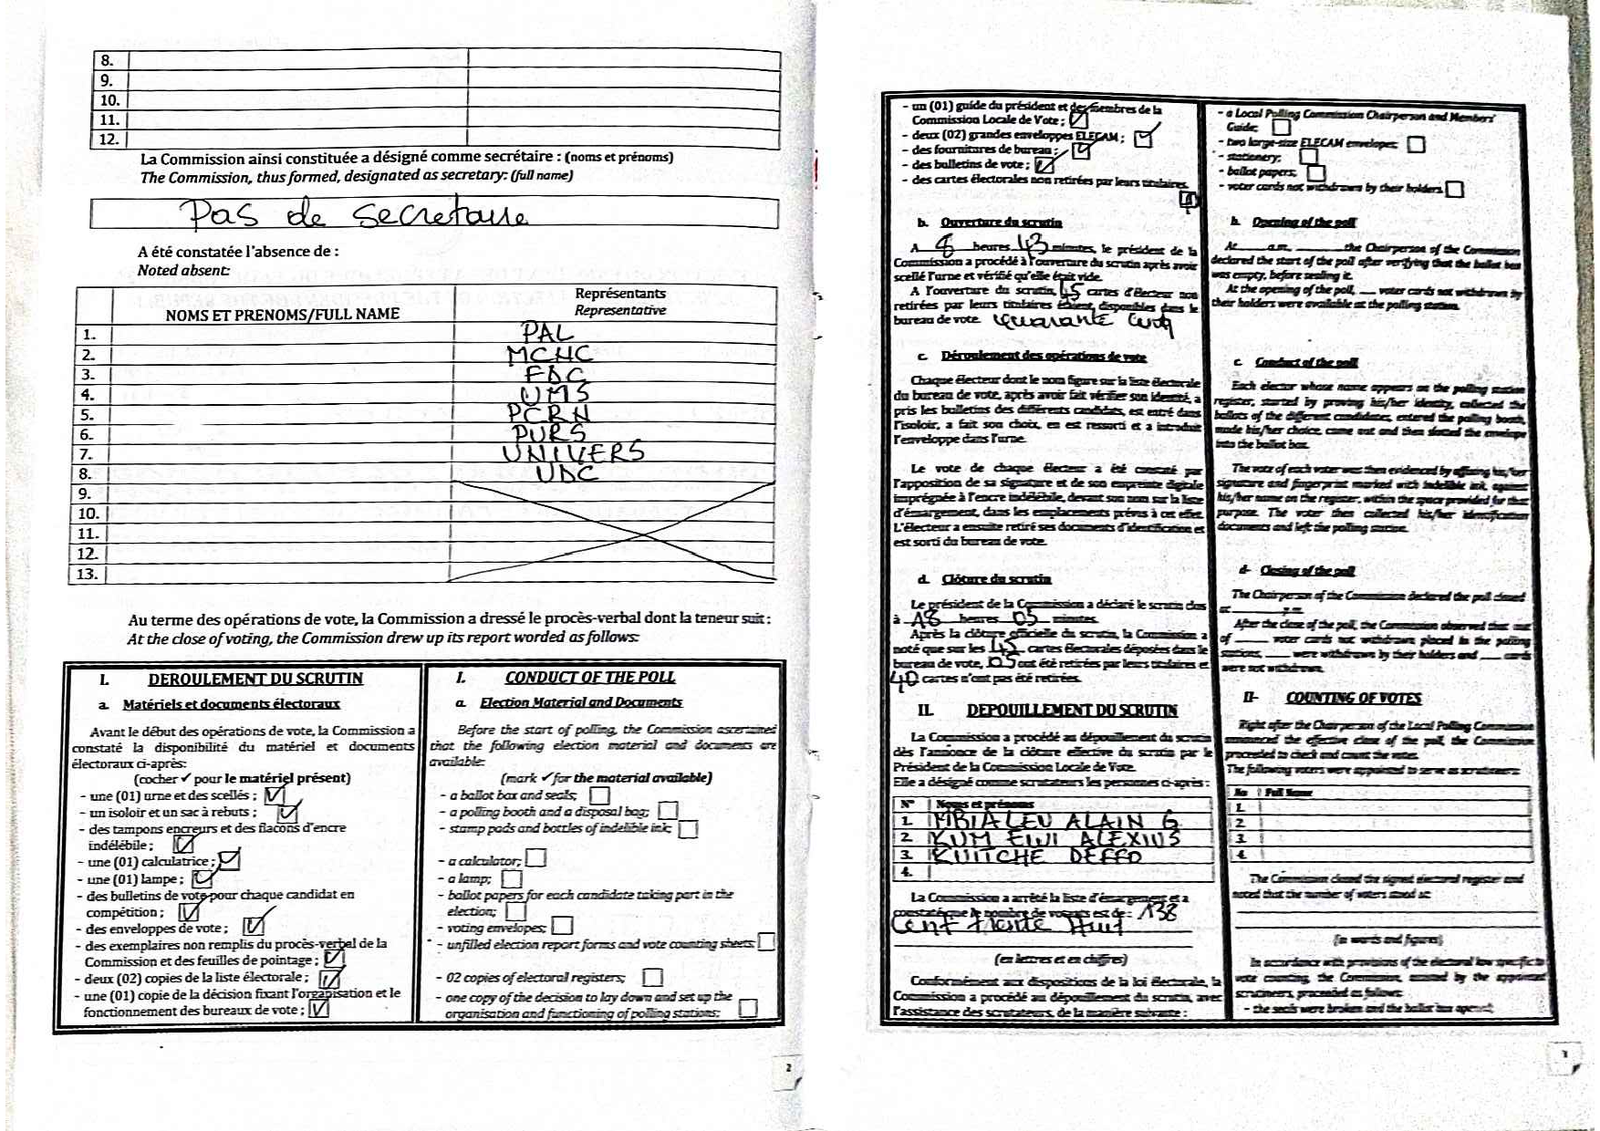 8.
9.
10.
11.
12.
La Commission ainsi constituée a désigné comme secrétaire : (noms et prénoms)
The Commission, thus formed, designated as secretary: (full name)
Pas de secretaire
A été constatée l'absence de :
Noted absent:
NOMS ET PRENOMS/FULL NAME
Représentants
Representative
1. PAL
2. MCNC
3. FDC
4. UMS
5. PCRN
6. PURS
7. UNIVERS
8. UDC
9.
10.
11.
12.
13.
Au terme des opérations de vote, la Commission a dressé le procès-verbal dont la teneur suit :
At the close of voting, the Commission drew up its report worded as follows:
I. DEROULEMENT DU SCRUTIN
a. Matériels et documents électoraux
Avant le début des opérations de vote, la Commission a
constaté la disponibilité du matériel et documents
électoraux ci-après:
(cocher ✓ pour le matériel présent)
- une (01) urne et des scellés ;
- un isoloir et un sac à rebuts ;
- des tampons encreurs et des flacons d'encre
indélébile ;
- une (01) calculatrice ;
- une (01) lampe ;
- des bulletins de vote pour chaque candidat en
compétition ;
- des enveloppes de vote ;
- des exemplaires non remplis du procès-verbal de la
Commission et des feuilles de pointage ;
- deux (02) copies de la liste électorale ;
- une (01) copie de la décision fixant l'organisation et le
fonctionnement des bureaux de vote ;
I. CONDUCT OF THE POLL
a. Election Material and Documents
Before the start of polling, the Commission ascertained
that the following election material and documents are
available:
(mark ✓ for the material available)
- a ballot box and seals;
- a polling booth and a disposal bag;
- stamp pads and bottles of indelible ink;
- a calculator;
- a lamp;
- ballot papers for each candidate taking part in the
election;
- voting envelopes;
- unfilled election report forms and vote counting sheets;
- 02 copies of electoral registers;
- one copy of the decision to lay down and set up the
organisation and functioning of polling stations;
2
- un (01) guide du président et des membres de la
Commission Locale de Vote ;
- deux (02) grandes enveloppes ELECAM ;
- des fournitures de bureau ;
- des bulletins de vote ;
- des cartes électorales non retirées par leurs titulaires.
b. Ouverture du scrutin
A 8 heures 43 minutes, le président de la
Commission a procédé à l'ouverture du scrutin après avoir
scellé l'urne et vérifié qu'elle était vide.
A l'ouverture du scrutin, 45 cartes d'électeur non
retirées par leurs titulaires étaient disponibles dans le
bureau de vote. quarante cinq
c. Déroulement des opérations de vote
Chaque électeur dont le nom figure sur la liste électorale
du bureau de vote, après avoir fait vérifier son identité, a
pris les bulletins des différents candidats, est entré dans
l'isoloir, a fait son choix, en est ressorti et a introduit
l'enveloppe dans l'urne.
Le vote de chaque électeur a été constaté par
l'apposition de sa signature et de son empreinte digitale
imprégnée à l'encre indélébile, devant son nom sur la liste
d'émargement, dans les emplacements prévus à cet effet.
L'électeur a ensuite retiré ses documents d'identification et
est sorti du bureau de vote.
d. Clôture du scrutin
Le président de la Commission a déclaré le scrutin clos
à 18 heures 05 minutes.
Après la clôture officielle du scrutin, la Commission a
noté que sur les 45 cartes électorales déposées dans le
bureau de vote, 05 ont été retirées par leurs titulaires et
40 cartes n'ont pas été retirées.
II. DEPOUILLEMENT DU SCRUTIN
La Commission a procédé au dépouillement du scrutin
dès l'annonce de la clôture effective du scrutin par le
Président de la Commission Locale de Vote.
Elle a désigné comme scrutateurs les personnes ci-après :
N° Noms et prénoms
1. MBIALEU ALAIN G
2. KUM EIWI ALEXIUS
3. KUITCHE DEFFO
4.
La Commission a arrêté la liste d'émargement et a
constaté que le nombre de votants est de : 138
Cent trente Huit
(en lettres et en chiffres)
Conformément aux dispositions de la loi électorale, la
Commission a procédé au dépouillement du scrutin, avec
l'assistance des scrutateurs, de la manière suivante :
- a Local Polling Commission Chairperson and Members'
Guide;
- two large-size ELECAM envelopes;
- stationery;
- ballot papers;
- voter cards not withdrawn by their holders.
b. Opening of the poll
At a.m. the Chairperson of the Commission
declared the start of the poll after verifying that the ballot box
was empty, before sealing it.
At the opening of the poll, voter cards not withdrawn by
their holders were available at the polling station.
c. Conduct of the poll
Each elector whose name appears on the polling station
register, started by proving his/her identity, collected the
ballots of the different candidates, entered the polling booth,
made his/her choice, came out and then slotted the envelope
into the ballot box.
The vote of each voter was then evidenced by affixing his/her
signature and fingerprint marked with indelible ink, against
his/her name on the register, within the space provided for that
purpose. The voter then collected his/her identification
documents and left the polling station.
d- Closing of the poll
The Chairperson of the Commission declared the poll closed
at p.m.
After the close of the poll, the Commission observed that out
of voter cards not withdrawn placed in the polling
stations, were withdrawn by their holders and cards
were not withdrawn.
II- COUNTING OF VOTES
Right after the Chairperson of the Local Polling Commission
announced the effective close of the poll, the Commission
proceeded to check and count the votes.
The following voters were appointed to serve as scrutineers:
No Full Name
1.
2
3.
4.
The Commission closed the signed electoral register and
noted that the number of voters stood at:
(in words and figures)
In accordance with provisions of the electoral law specific to
vote counting, the Commission, assisted by the appointed
scrutineers, proceeded as follows:
- the seals were broken and the ballot box opened;
3